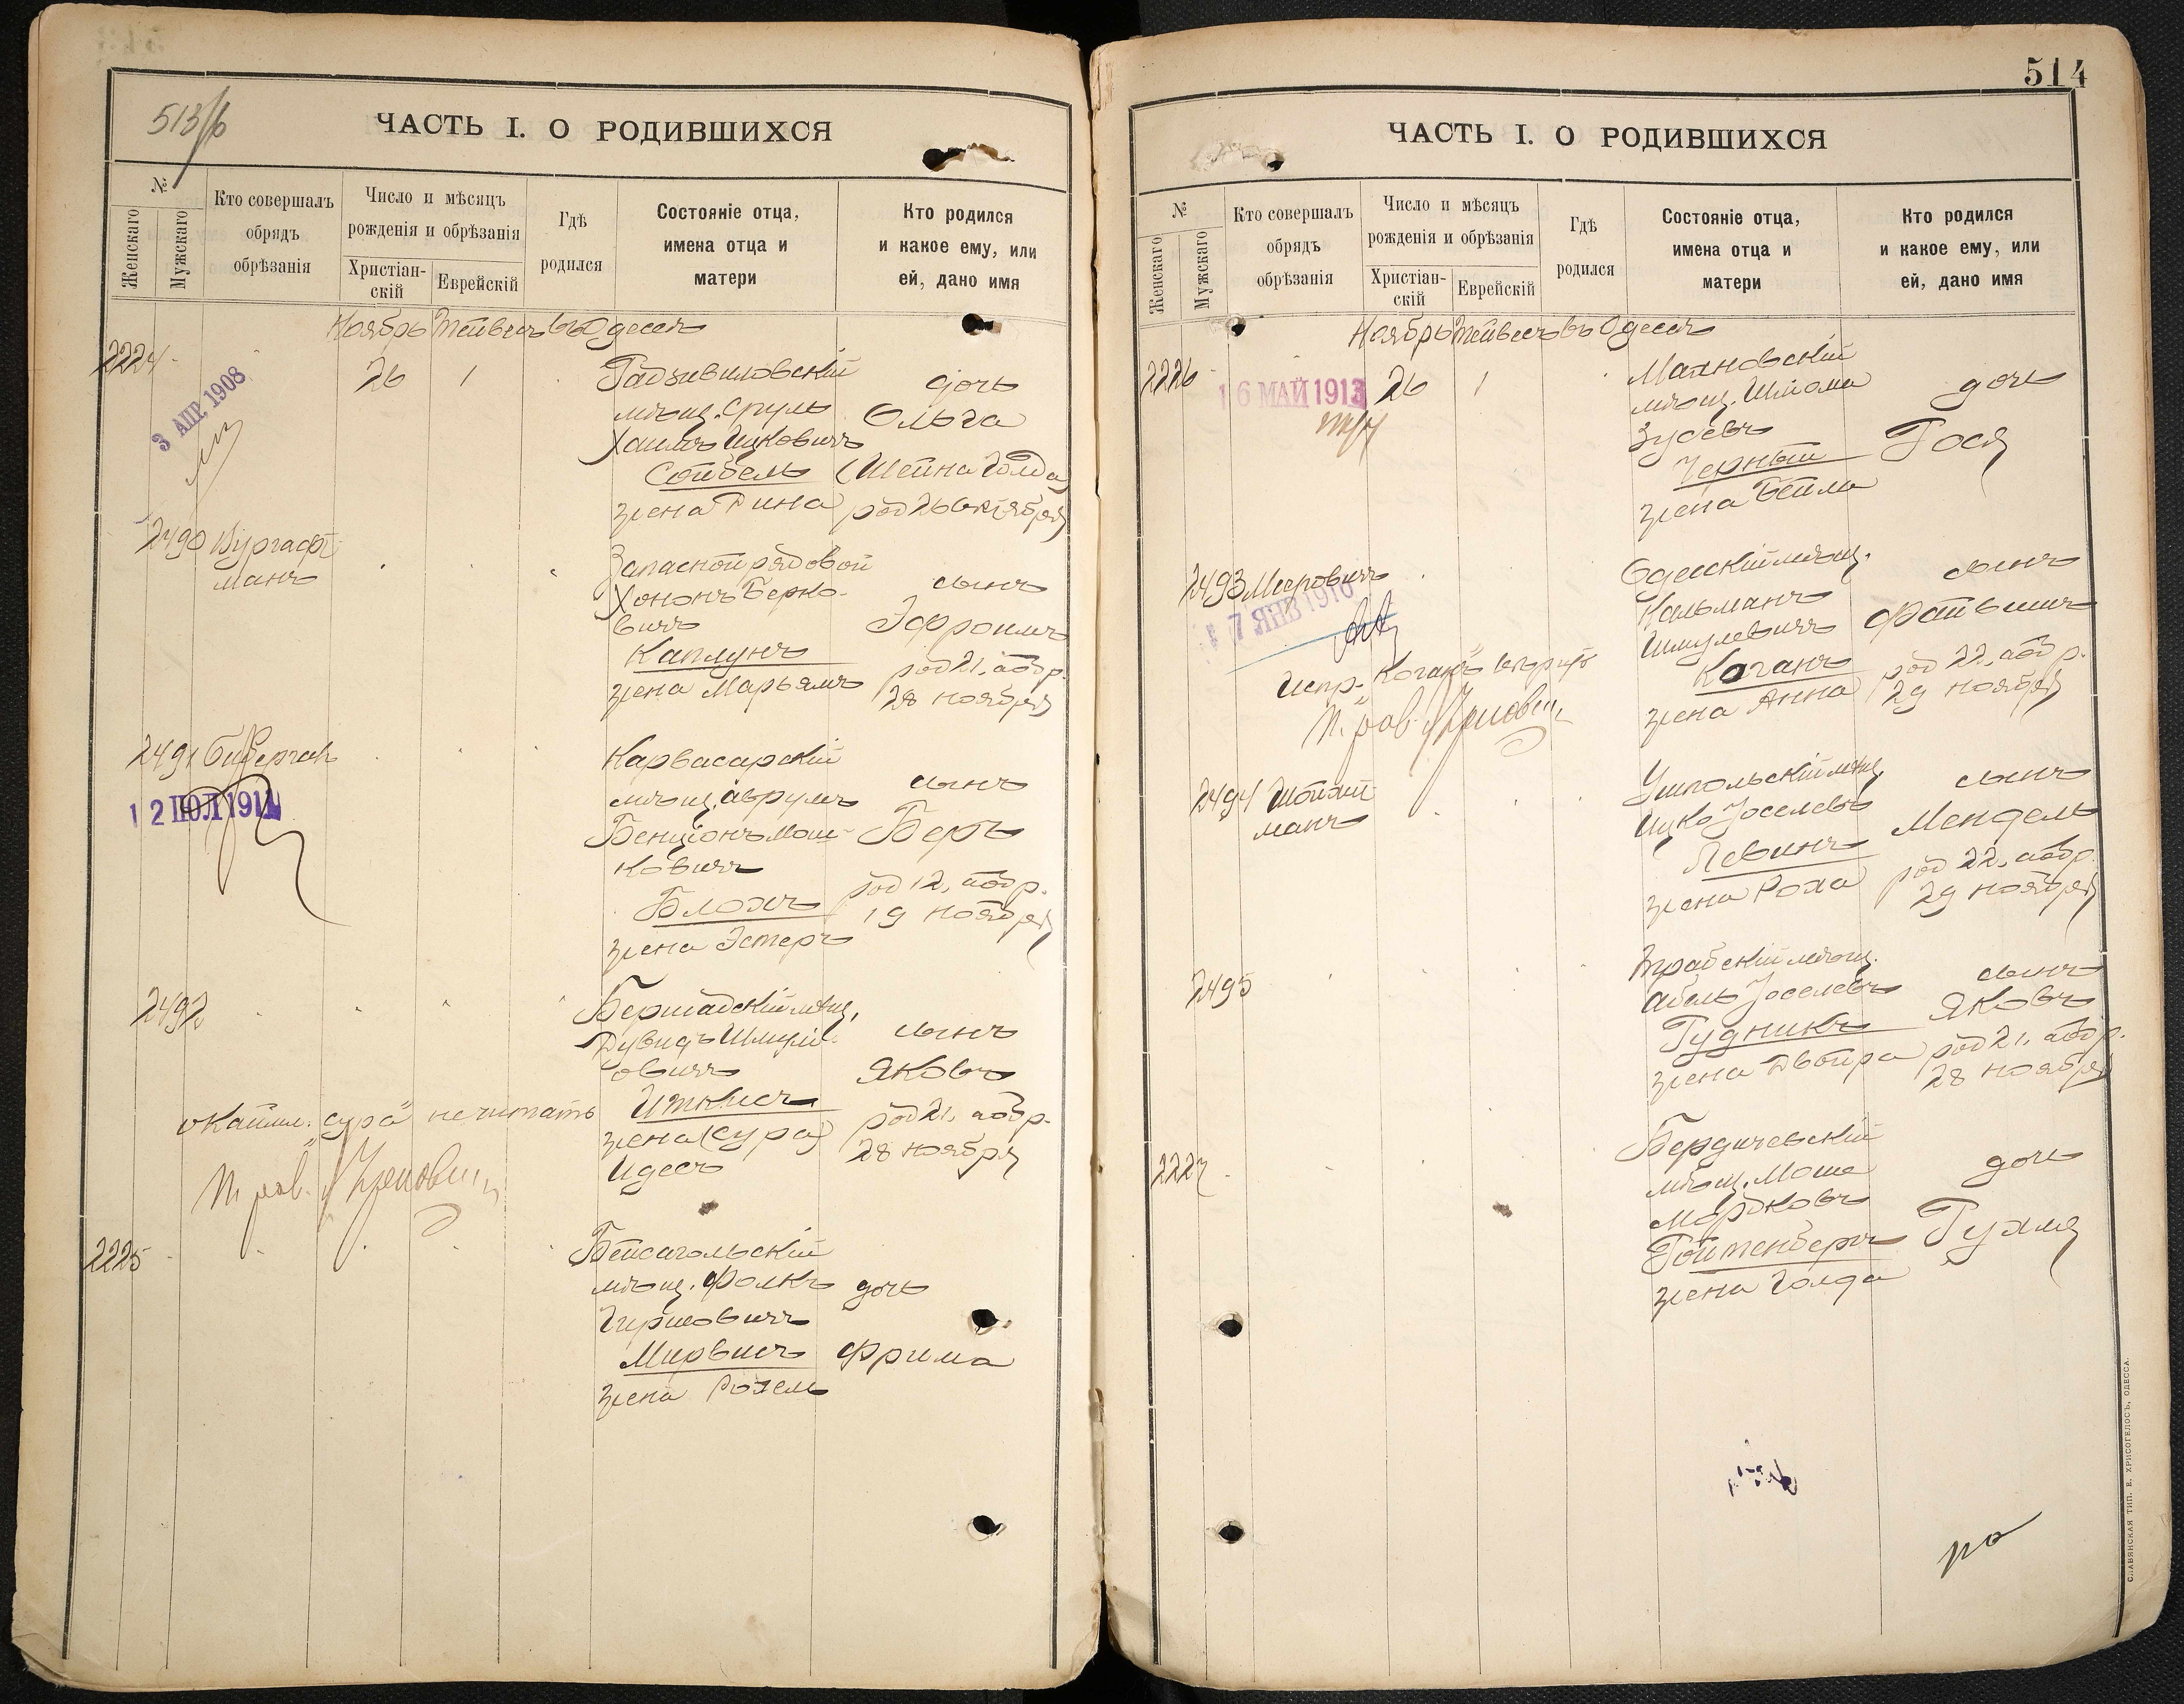 513/б
ЧАСТЬ I. О РОДИВШИХСЯ
№
Женскаго
Мужскаго
Кто совершалъ
обрядъ
обрѣзанія
Число и мѣсяцъ
рожденія и обрѣзанія
Христіан-
скій
Еврейскій
Гдѣ
родился
Состояніе отца,
имена отца и
матери
Кто родился
и какое ему, или
ей, дано имя
Ноябрь Тейвесъ въ Одессѣ
2224
3 АПР. 1908
26 1
Радзивиловскій
мѣщ. Сруль
Хаимъ Ицковичъ
Сойбель
жена Рина
дочь
Ольга
(Шейна Голда)
род 26 октября
2490 Вургафт-
манъ
Запасной рядовой
Хононъ Берко-
вичъ
Каплунъ
жена Марьямъ
сынъ
Эфроимъ
род 21, обр.
28 ноября
2491
12 ІЮЛ 1911
Карвасарскій
мѣщ. Аврумъ
Бенціонъ Мош-
ковичъ
Блохъ
жена Эстеръ
сынъ
Беръ
род 12, обр.
19 ноября
2492
Бершадскій мѣщ.
Дувидъ Шмулі-
овичъ
Иткисъ
жена (Сура)
Идесъ
сынъ
Яковъ
род 21, обр.
28 ноября
"Сура" не читать
2225
Бейсагольскій
мѣщ. Фолкъ
Гиршовичъ
Мирвисъ
жена Рохель
дочь
Фрима
514
ЧАСТЬ I. О РОДИВШИХСЯ
№
Женскаго
Мужскаго
Кто совершалъ
обрядъ
обрѣзанія
Число и мѣсяцъ
рожденія и обрѣзанія
Христіан-
скій
Еврейскій
Гдѣ
родился
Состояніе отца,
имена отца и
матери
Кто родился
и какое ему, или
ей, дано имя
Ноябрь Тейвесъ въ Одессѣ
2226
16 МАЙ 1913
26 1
Маяновскій
мѣщ. Шліома
Зусевъ
Черный
жена Бейла
дочь
Рося
2493 Мееровичъ
17 ЯНВ 1910
Одесскій мѣщ.
Кальманъ
Шмулевичъ
Коганъ
жена Анна
сынъ
Файвишъ
род 22, обр.
29 ноября
Испр. "Коганъ"
2494 Шойхит-
манъ
Ушпольскій мѣщ.
Ицко Іоселевъ
Левинъ
жена Роха
сынъ
Мендель
род 22, обр.
29 ноября
2495
Трабскій мѣщ.
Абель Іоселевъ
Рудникъ
жена Двойра
сынъ
Яковъ
род 21, обр.
28 ноября
2227
Бердичевскій
мѣщ. Моше
Мордковъ
Ройтенбергъ
жена Голда
дочь
Рухля
СЛАВЯНСКАЯ ТИП. Е. ХРИСОГЕЛОСЪ, ОДЕССА.